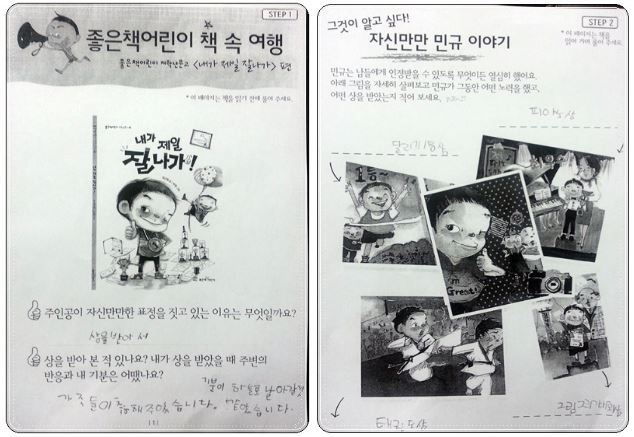 STEP 1
좋은책어린이 책 속 여행
좋은책어린이 저학년문고 <내가 제일 잘나가> 편
* 이 페이지는 책을 읽기 전에 풀어 주세요.
내가 제일
잘나가!
주인공이 자신만만한 표정을 짓고 있는 이유는 무엇일까요?
상을 받아서
상을 받아 본 적 있나요? 내가 상을 받았을 때 주변의
반응과 내 기분은 어땠나요?
기분이 하늘로 날아갈것
가족들이 축하해주었습니다.
그것이 알고 싶다!
STEP 2
자신만만 민규 이야기
* 이 페이지는 책을
읽어 가며 풀어 주세요.
민규는 남들에게 인정받을 수 있도록 무엇이든 열심히 했어요.
아래 그림을 자세히 살펴보고 민규가 그동안 어떤 노력을 했고,
어떤 상을 받았는지 적어 보세요.
피아노상
달리기 1등상
I'm
Great!
태권도상